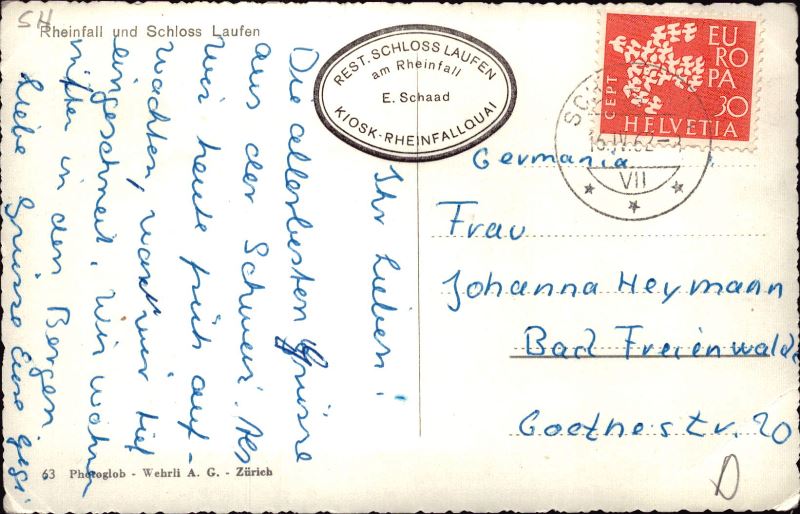 SH
Rheinfall und Schloss Laufen
REST. SCHLOSS LAUFEN
am Rheinfall
E. Schaad
KIOSK-RHEINFALLQUAI
EUROPA
CEPT
30
HELVETIA
VII
Ihr Lieben!
Die allerbesten Grüsse
aus der Schweiz. Als
wir heute früh auf-
wachten, warn wir tief
eingeschneit. Wir wohnen
mitten in den Bergen.
Liebe Grüsse Eure Gigi
Germania
Frau
Johanna Heymann
Bad Freienwalde
Goethestr. 20
D
63 Photoglob - Wehrli A. G. - Zürich